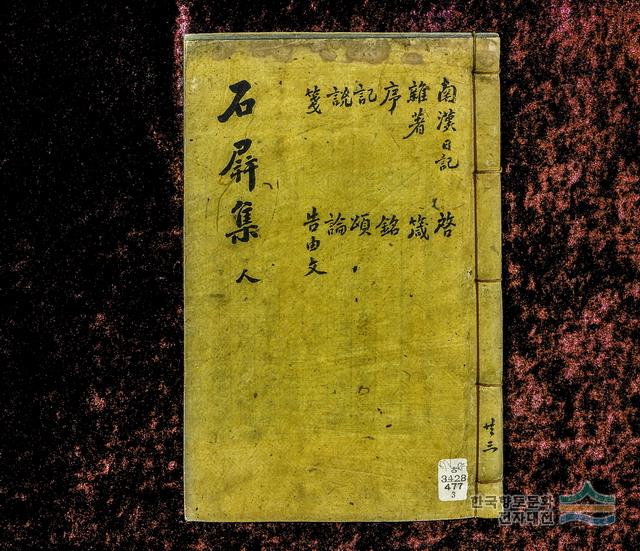 南漢日記 啓
雜著 箴
序 銘
記 頌
說 論
箋 告由文
石屛集 人
共三
3428
477
3
한국향토문화
전자대전